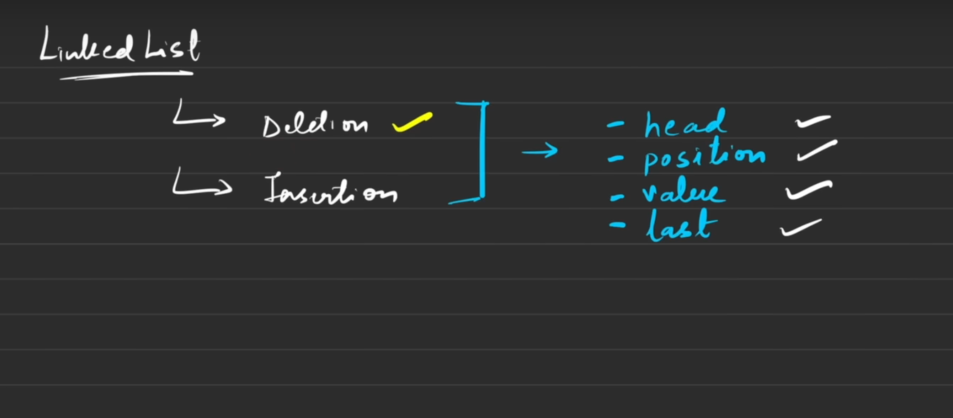 Linked List
↳ Deletion ✓
↳ Insertion
→
- head ✓
- position ✓
- value ✓
- last ✓